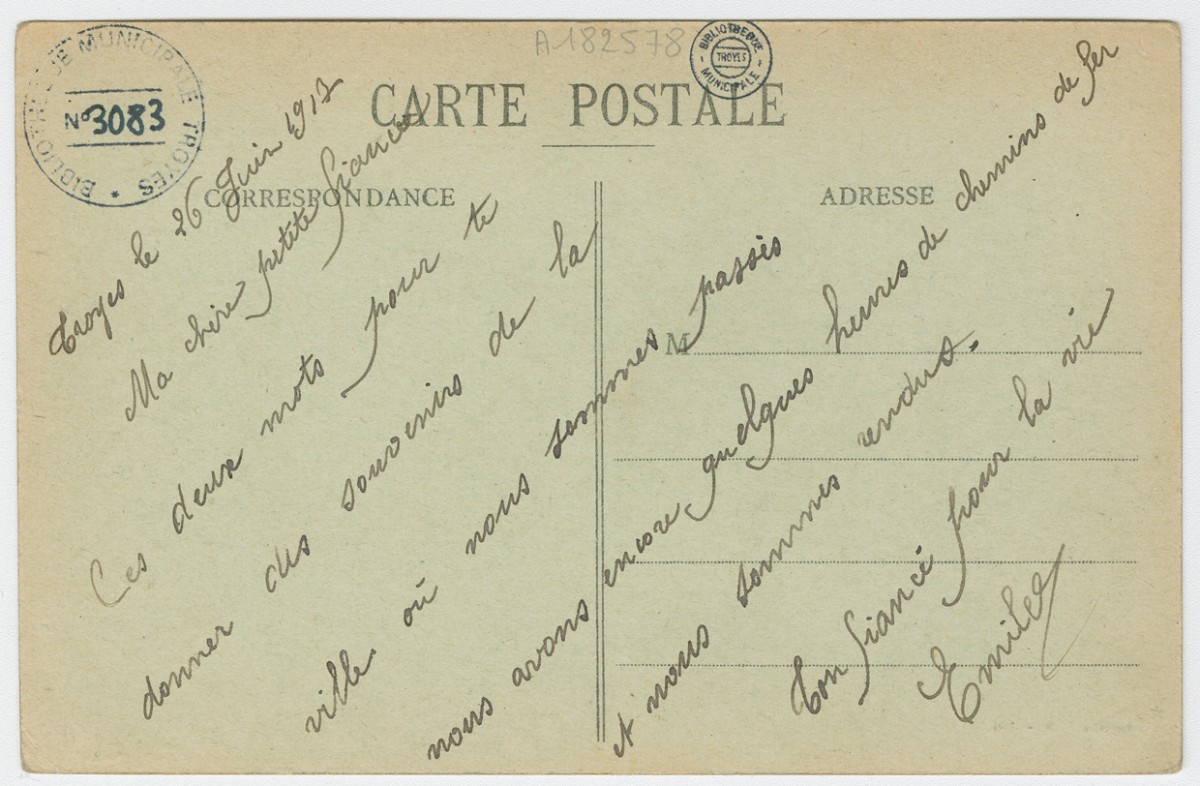 BIBLIOTHEQUE MUNICIPALE TROYES *
N° 3083
A182578
BIBLIOTHEQUE
TROYES
MUNICIPALE
CARTE POSTALE
CORRESPONDANCE
ADRESSE
M
Troyes le 26 Juin 1913
Ma chère petite fiancée
Ces deux mots pour te
donner des souvenirs de la
ville où nous sommes passés
nous avons encore quelques heures de chemins de fer
et nous sommes rendus.
Ton fiancé pour la vie
Emile